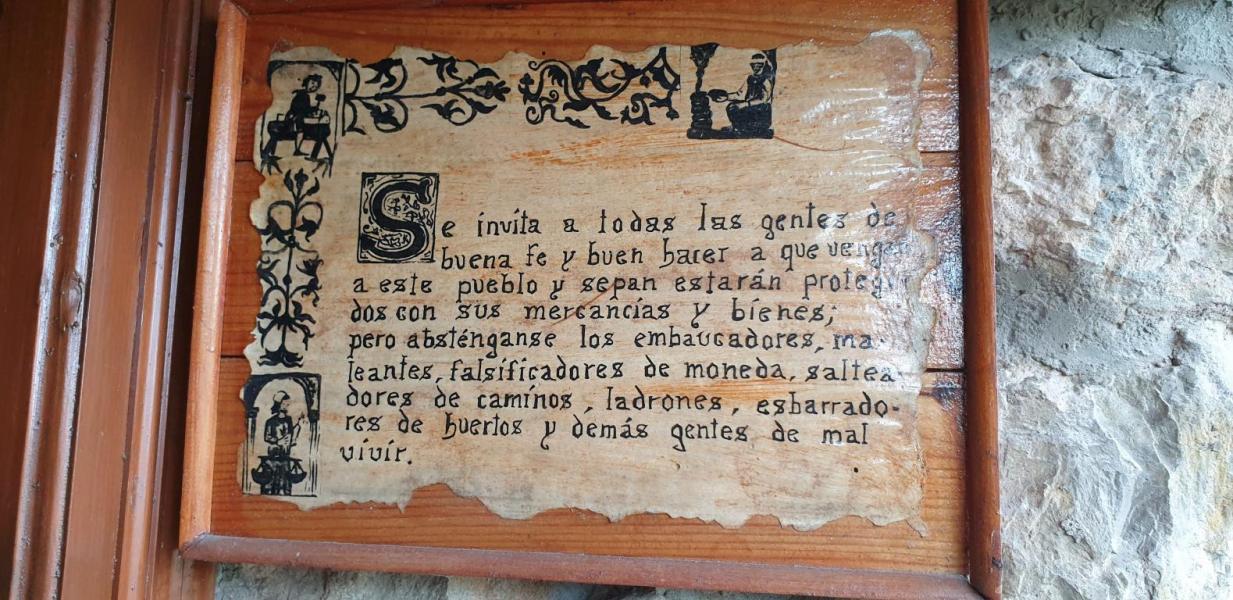 Se invita a todas las gentes de
buena fe y buen hacer a que vengan
a este pueblo y sepan estarán protegi
dos con sus mercancías y bienes;
pero absténganse los embaucadores, ma-
leantes, falsificadores de moneda, saltea-
dores de caminos, ladrones, esbarrado-
res de huertos y demás gentes de mal
vivir.